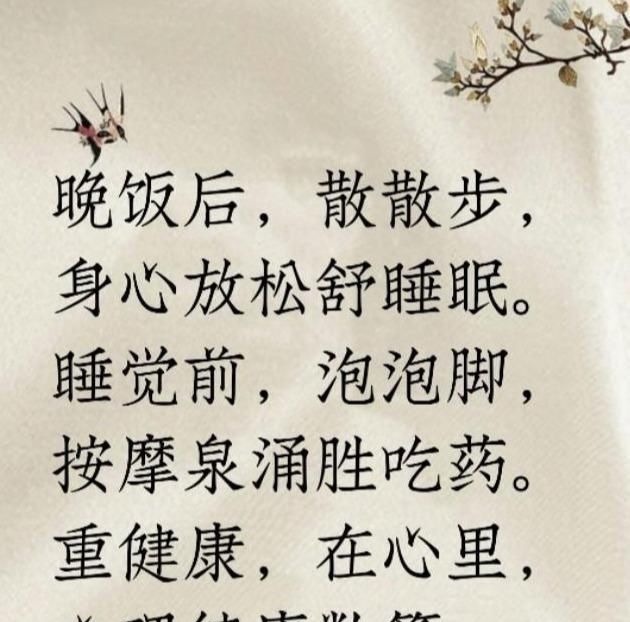 晚饭后，散散步，
身心放松舒睡眠。
睡觉前，泡泡脚，
按摩泉涌胜吃药。
重健康，在心里，